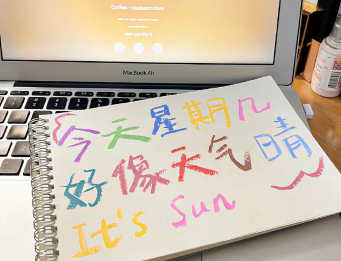 MacBook Air
今天星期几
好像天气晴
It's Sun